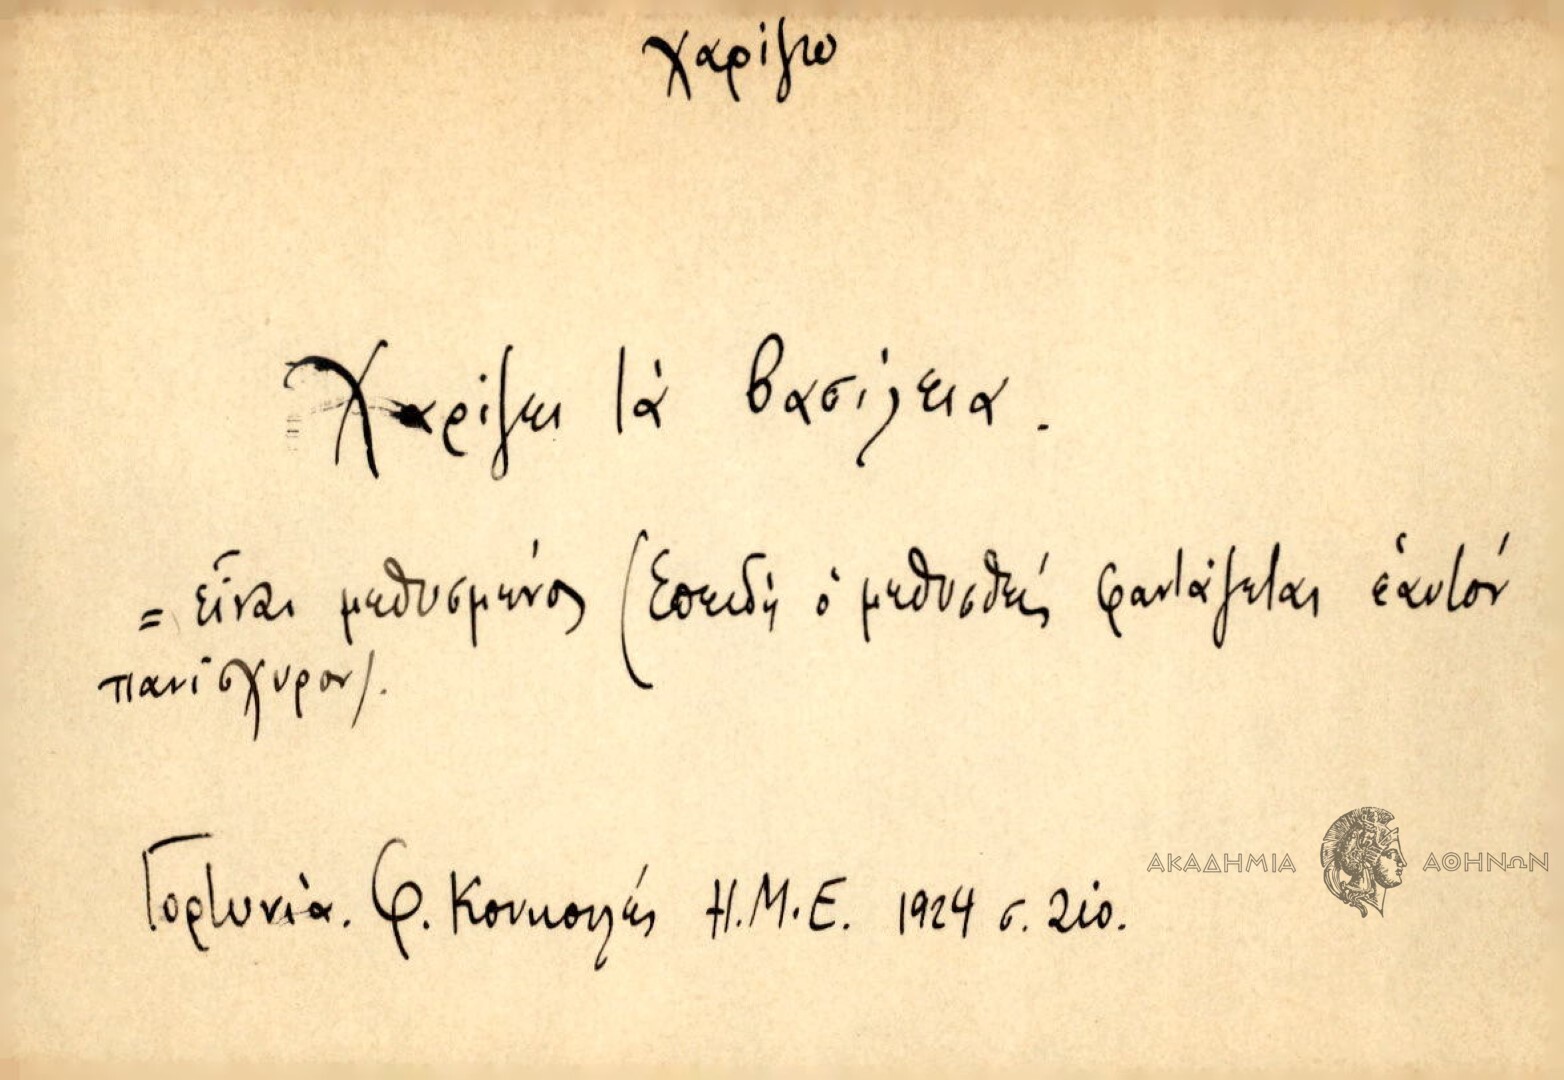 χαρίζω
Χαρίζει τὰ βασίλεια.
= εἶναι μεθυσμένος (ἐπειδὴ ὁ μεθυσθείς φαντάζεται ἑαυτόν
πανίσχυρον).
ΑΚΑΔΗΜΙΑ ΑΘΗΝΩΝ
Γορτυνία. Φ. Κουκουλές Η.Μ.Ε. 1924 σ. 210.